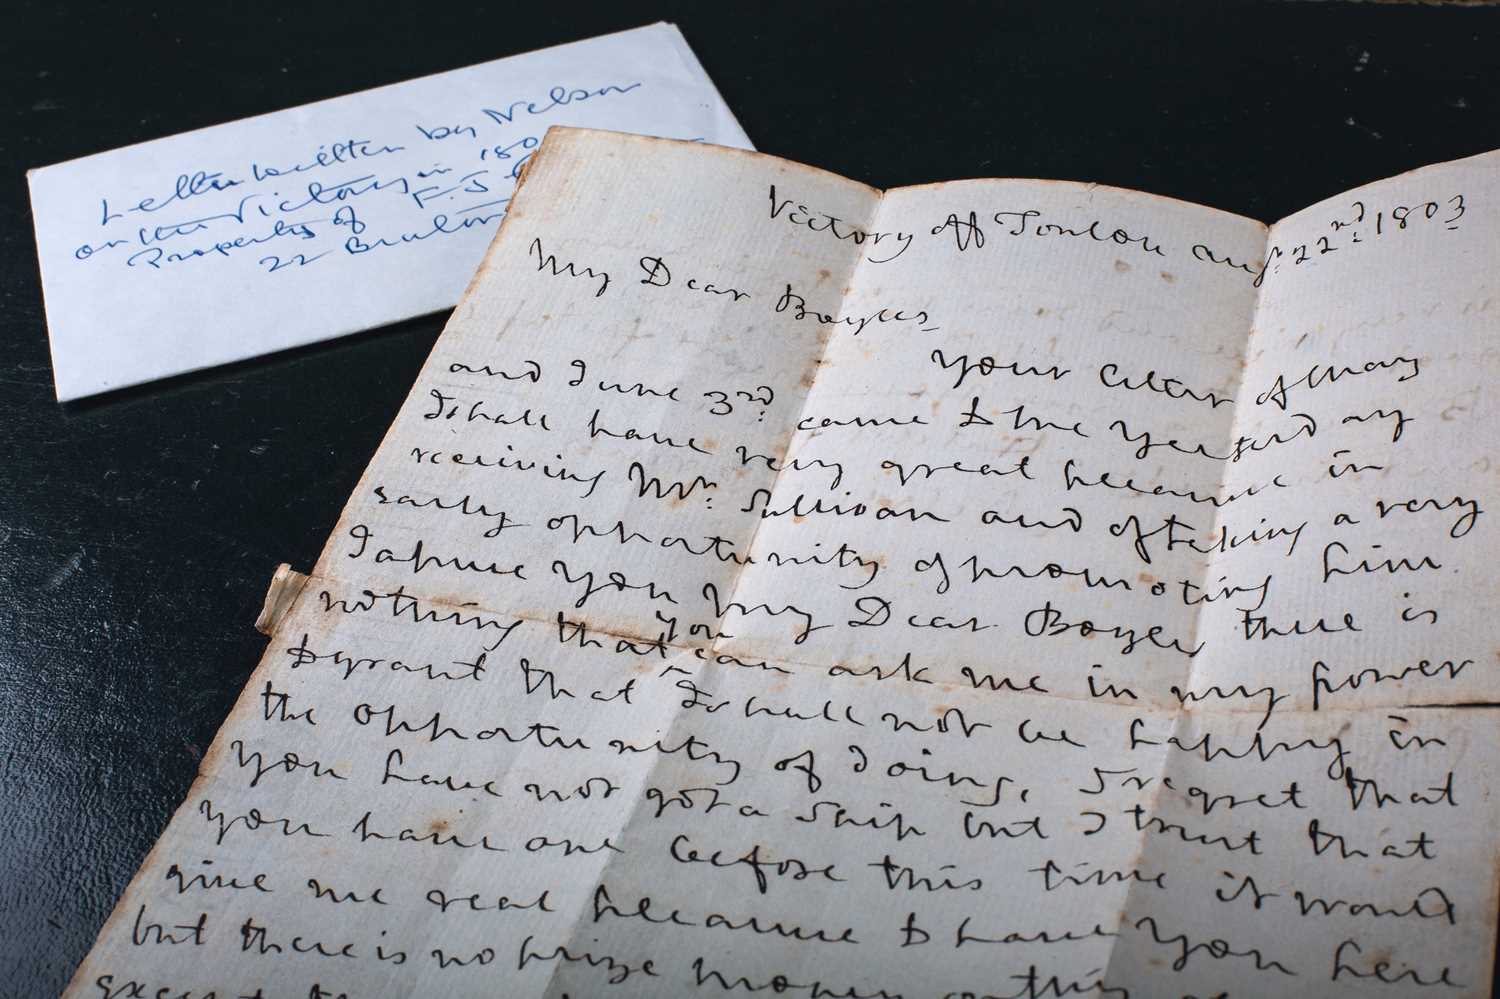 Letter written by Nelson
on the Victory in 180
Property of F. J
22 Bruton
Victory off Toulon Augt. 22nd: 1803
My Dear Boyles
Your letter of May
and June 3rd: came to me yesterday
I shall have very great pleasure in
receiving Mr. Sullivan and of taking a very
early opportunity of promoting him.
I assure you my Dear Boyles there is
nothing that you can ask me in my power
to grant that I shall not be happy in
the opportunity of doing, I regret that
you have not got a Ship but I trust that
you have one before this time it would
give me real pleasure to have you here
but there is no prize money on this
except